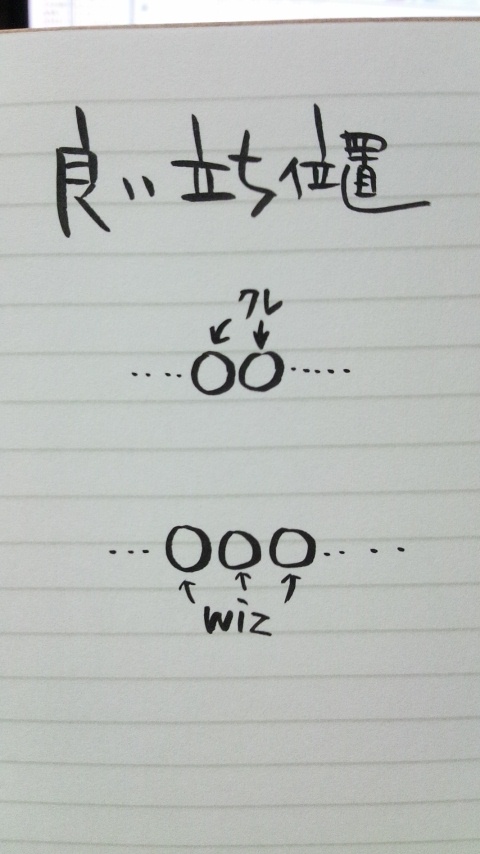 良い立ち位置
クレ
‥‥○○‥‥‥
‥‥○○○‥‥‥
wiz